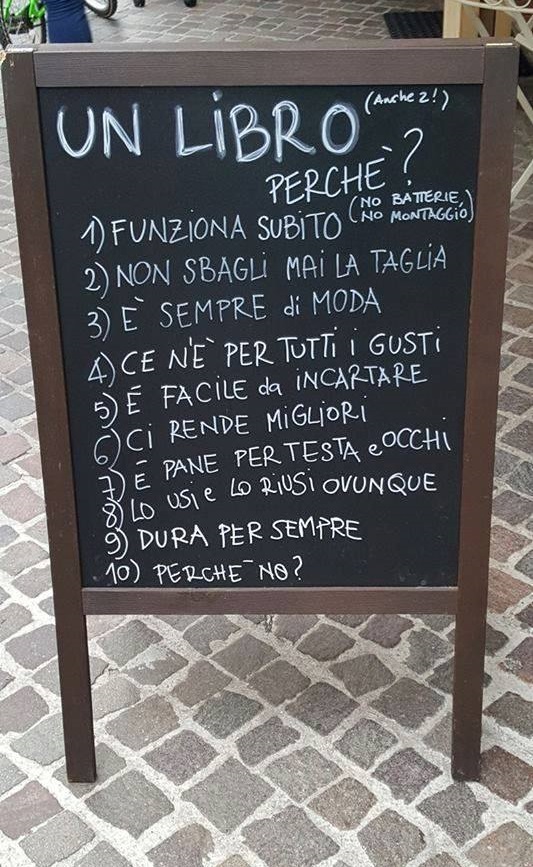 UN LiBRO (Anche 2!)
PERCHÈ?
1) FUNZIONA SUBiTO (NO BATTERIE, NO MONTAGGiO)
2) NON SBAGLi MAi LA TAGLiA
3) È SEMPRE di MODA
4) CE N'È PER TUTTi i GUSTi
5) É FACiLE da iNCARTARE
6) Ci RENDE MiGLiORi
7) É PANE PER TESTA e OCCHi
8) LO USi e LO RiUSi OVUNQUE
9) DURA PER SEMPRE
10) PERCHĒ NO?